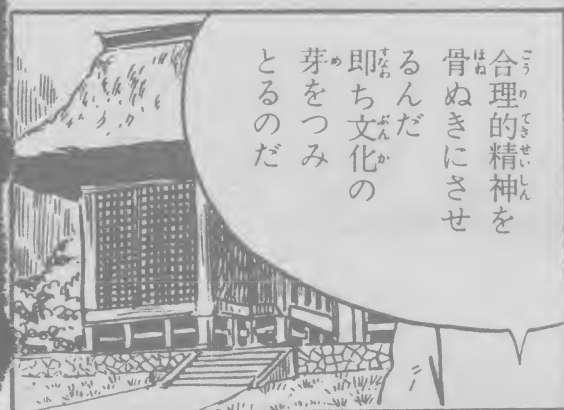 合理的精神を
骨ぬきにさせ
るんだ
即ち文化の
芽をつみ
とるのだ